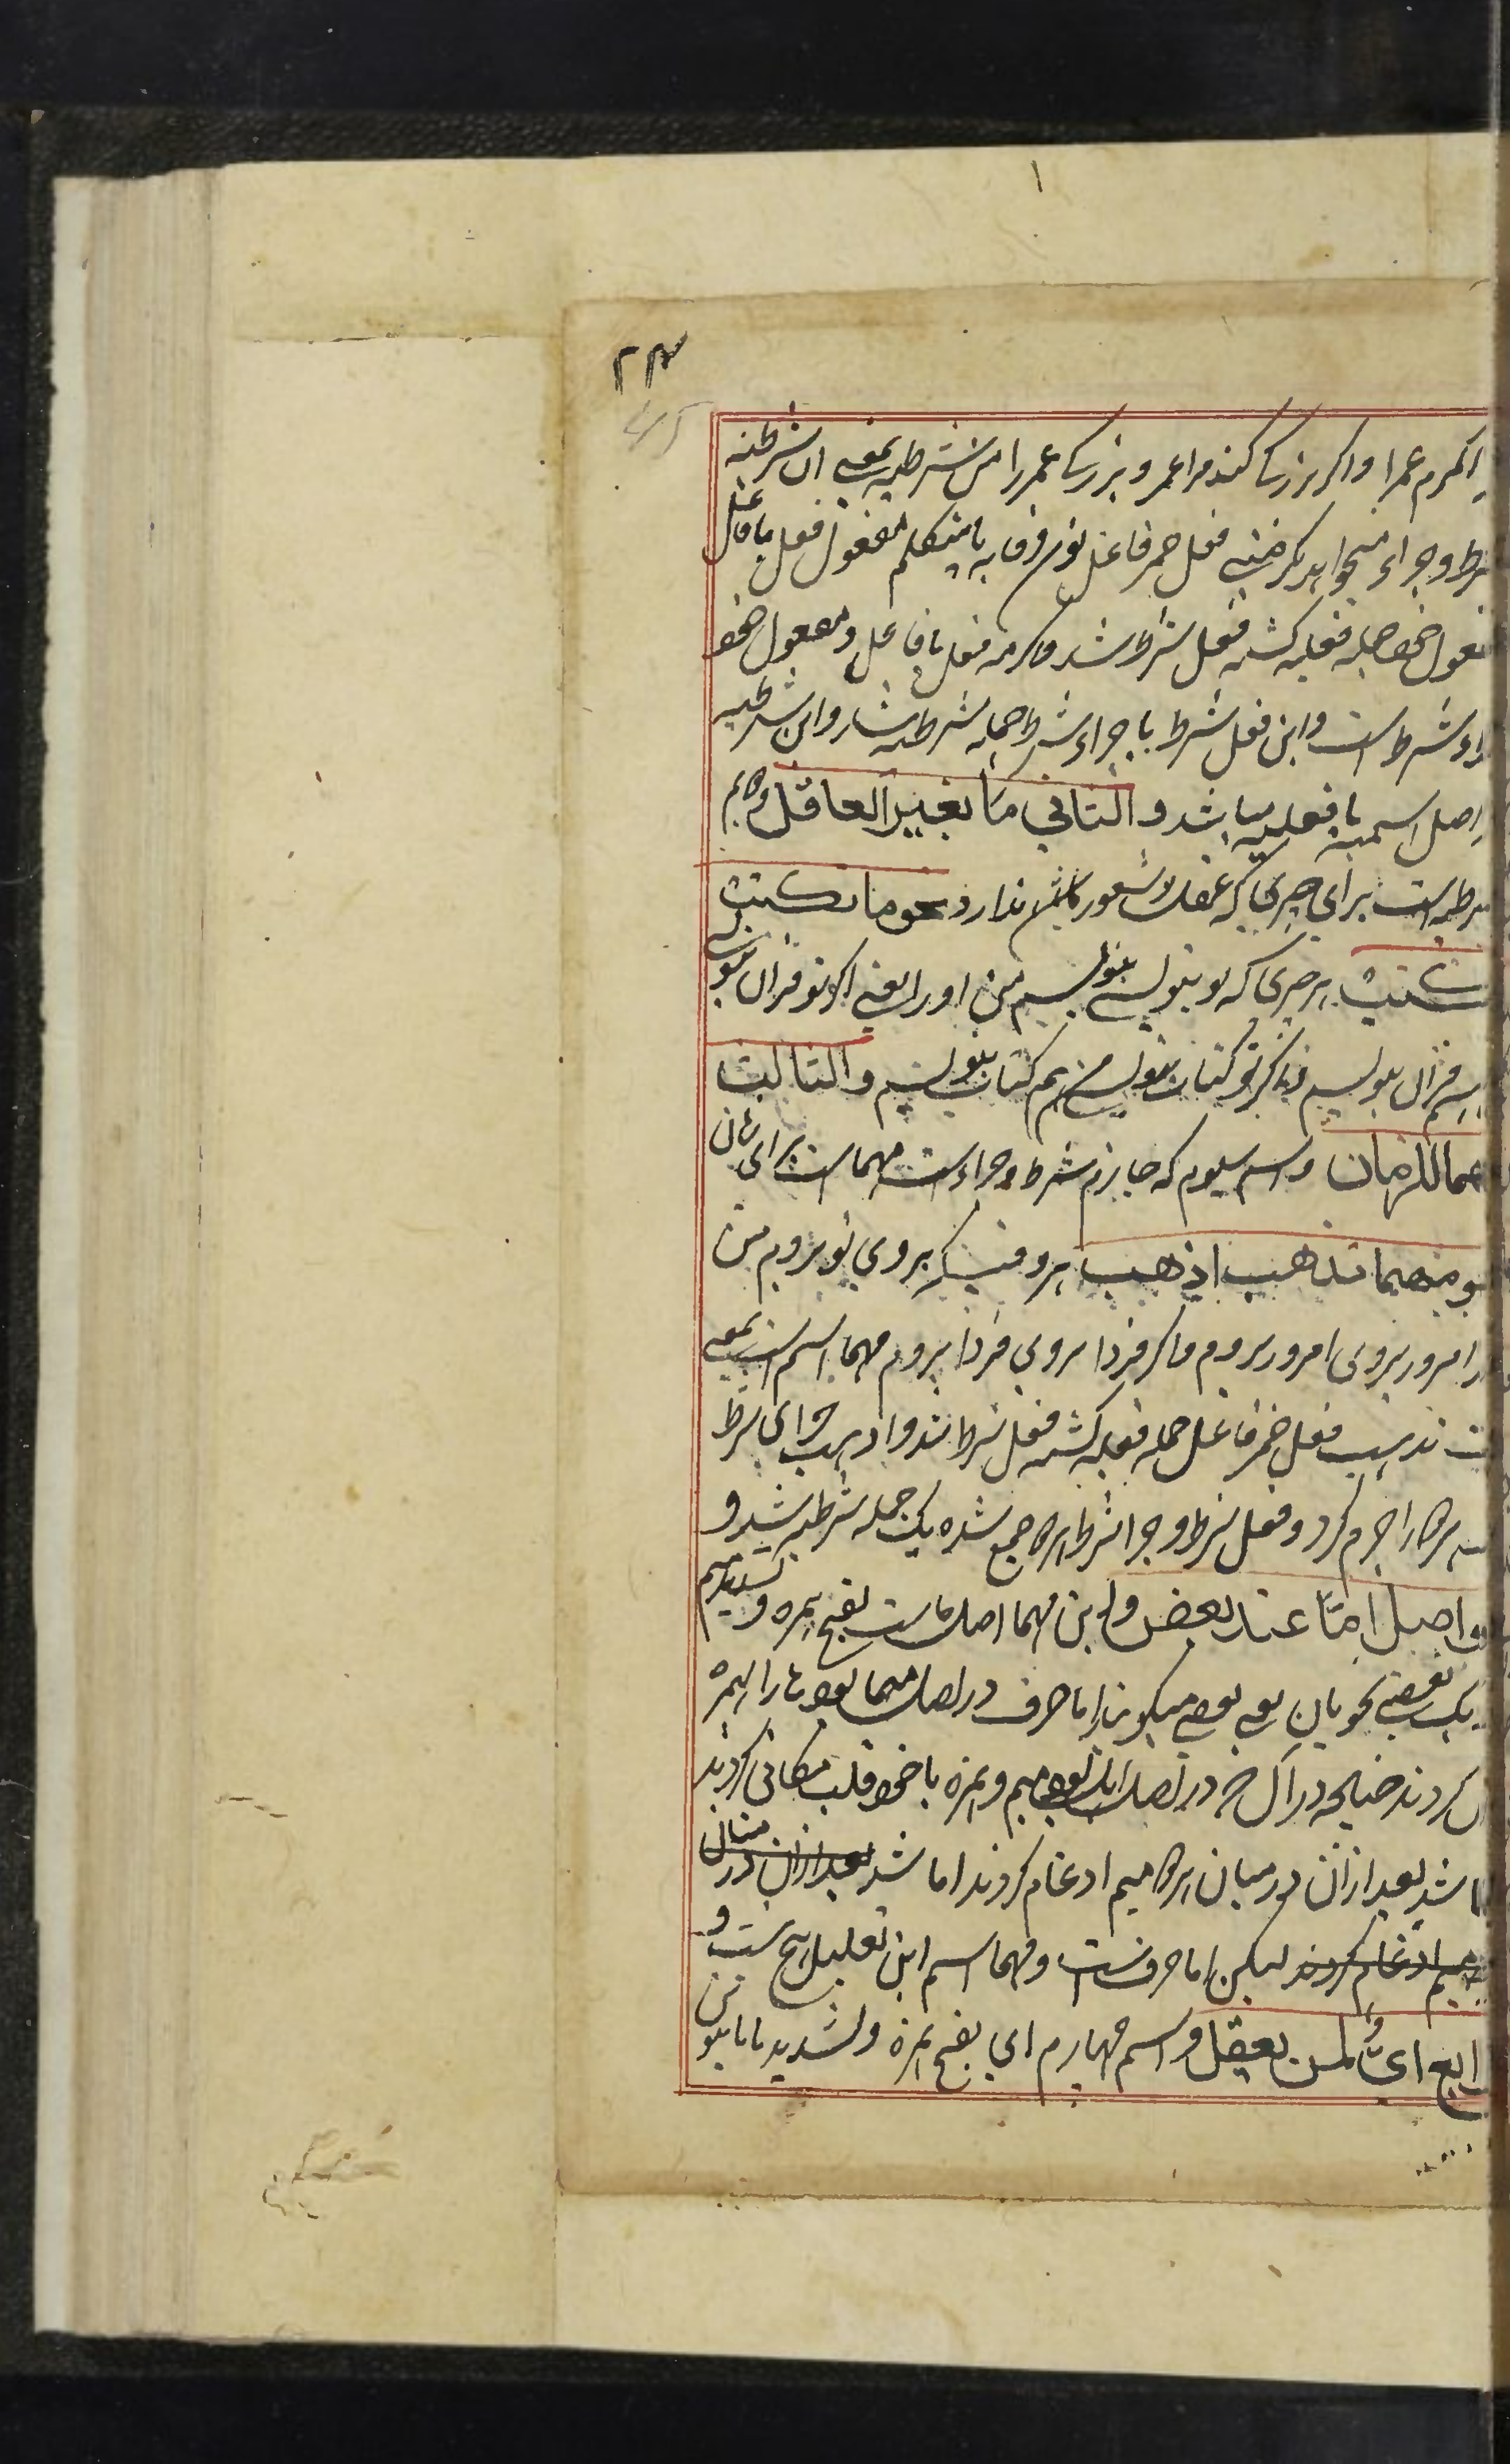 ۱
۲۴
اکرم عمرا و اکر بزرکی کند مرا عمر و بزرکی عمر را من شرطیه بمعنی ان شرطیه
شرط و جزاء میخواهد یکرمنی فعل ضمر فاعل نون وقایه یا متکلم مفعول فعل با فاعل
مفعول خود جمله فعلیه کشته فعل شرط شد و اکرمه فعل با فاعل و مفعول خود
جزاء شرط است و این فعل شرط با جزاء شرط جمله شرطیه شد و این شرطیه
در اصل اسمیه یا فعلیه میباشد و الثانی ما لغیر العاقل دوم
شرطیه است برای چیزی که عقل و شعور ندارد نحو ما تکتب
اکتب هر چیزی که تو بنویسی بنویسم من او را یعنی اکر تو قران بنویسی
من هم قران بنویسم و اکر تو کتاب بنویسی من هم کتاب بنویسم و الثالث
مهما للزمان و اسم سیوم که جازم شرط و جزاء است مهما است برای زمان
نحو مهما تذهب اذهب هر وقتیکه بروی تو بروم من
اکر امروز بروی امروز بروم و اکر فردا بروی فردا بروم مهما اسم است بمعنی
تذهب فعل ضمر فاعل جمله فعلیه کشته فعل شرط شد و اذهب جزای شرط
هر دو را جزم کرد و فعل شرط و جزا شرط هر دو جمع شده یک جمله شرطیه شد و
اصل امّا عند بعض و این مهما اصل اما است بفتح همزه و تشدید میم
نزدیک بعضی نحویان یعنی بعضی میکویند اما حرف در اصل مهما بود ها را همزه
کردند چنانچه در آل که در اصل اهل بود میم و همزه با خود قلب مکانی کردند
شد بعد ازان در میان هر دو میم ادغام کردند اما شد بعد ازان در میان
میم ادغام کردند لیکن اما حرفست و مهما اسم این تعلیل هیچ است و
الرابع ای لمن یعقل و اسم چهارم ای بفتح همزه و تشدید یا با تنوین